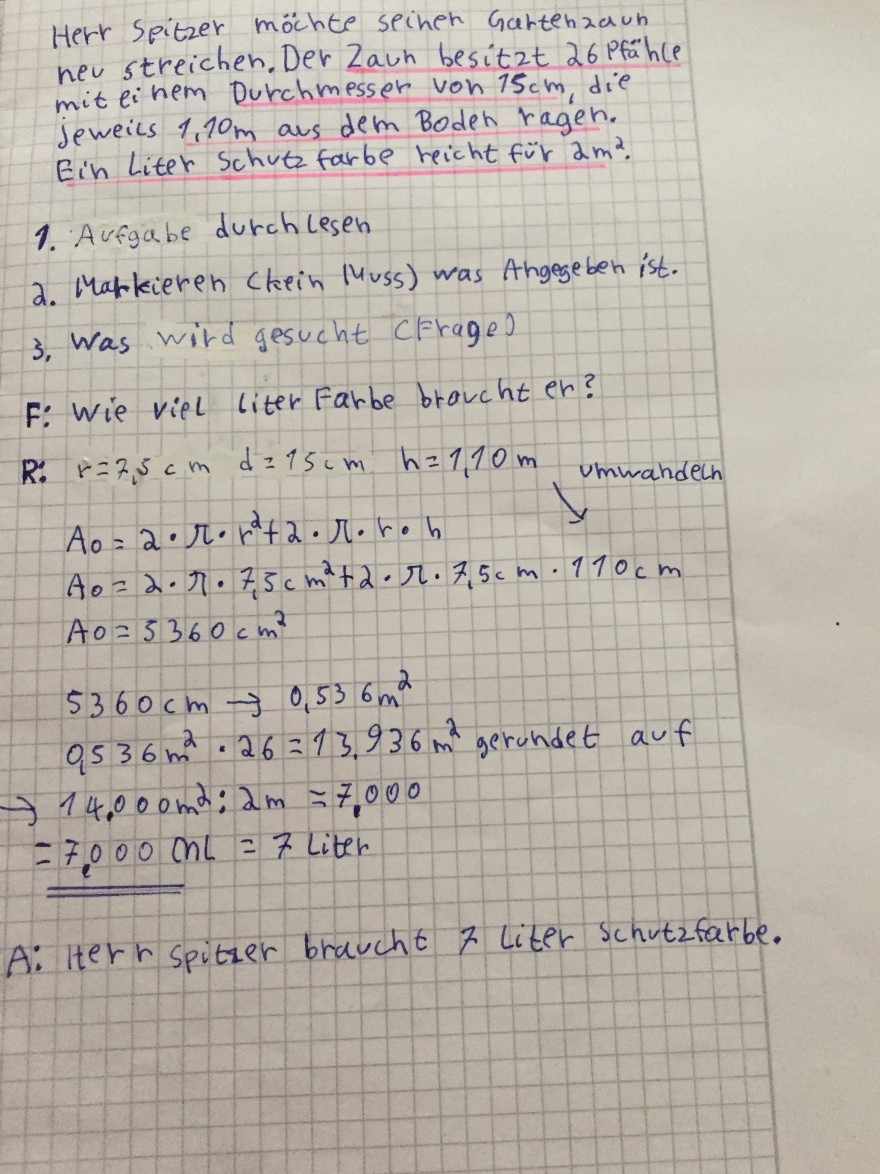 Herr Spitzer möchte seinen Gartenzaun
neu streichen. Der Zaun besitzt 26 Pfähle
mit einem Durchmesser von 15cm, die
jeweils 1,10m aus dem Boden ragen.
Ein Liter Schutzfarbe reicht für 2m².
1. Aufgabe durchlesen
2. Markieren (kein Muss) was Angegeben ist.
3. Was wird gesucht (Frage)
F: Wie viel liter Farbe braucht er?
R: r=7,5cm d=15cm h=1,10m umwandeln
Ao = 2·π·r²+2·π·r·h
Ao = 2·π·7,5cm²+2·π·7,5cm·110cm
Ao = 5360cm²
5360cm → 0,536m²
0,536m²·26=13,936m² gerundet auf
→ 14,000m²:2m =7,000
=7,000 ml = 7 Liter
A: Herr Spitzer braucht 7 Liter Schutzfarbe.